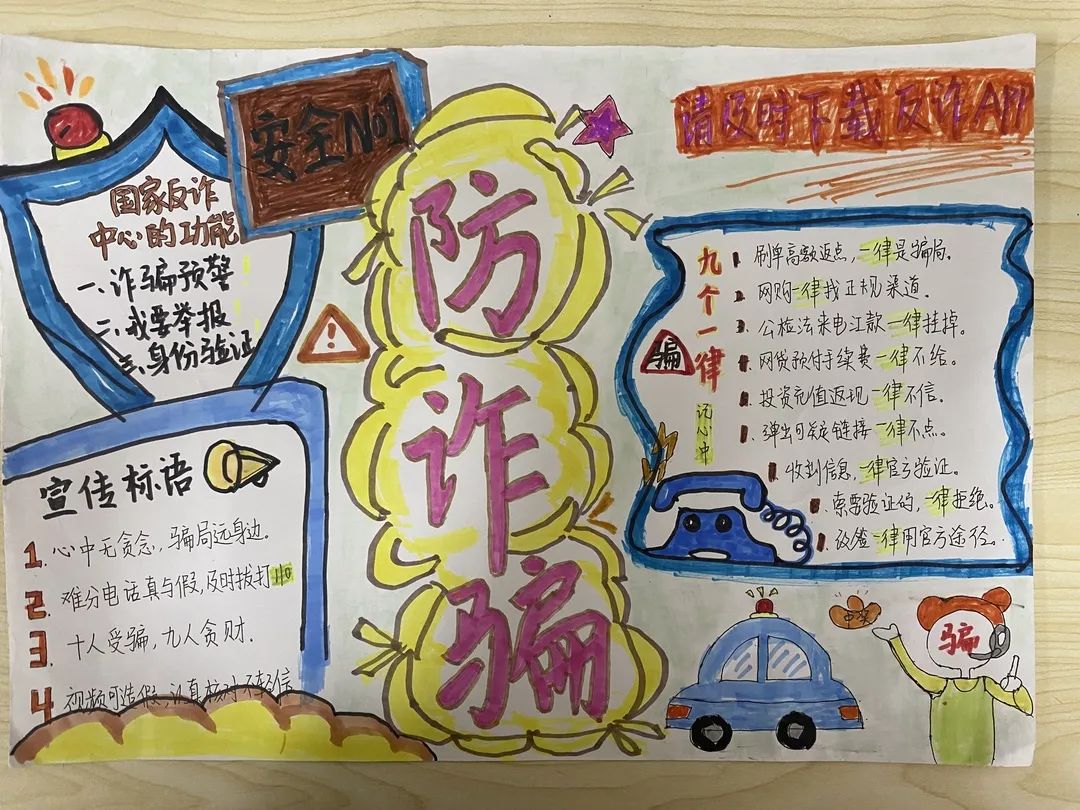 安全No1
国家反诈
中心的功能
一、诈骗预警
二、我要举报
三、身份验证
防诈骗
请及时下载反诈APP
九个一律
记心中
骗
刷单高额返点,一律是骗局。
网购一律找正规渠道。
公检法来电汇款一律挂掉。
网贷预付手续费一律不给。
投资充值返现一律不信。
弹出可疑链接一律不点。
收到信息,一律官方验证。
索要验证码,一律拒绝。
一律用官方途径。
宣传标语
1. 心中无贪念,骗局远身边。
2. 难分电话真与假,及时拨打110
3. 十人受骗,九人贪财.
4 视频可造假,认真核对不轻信
中奖
骗